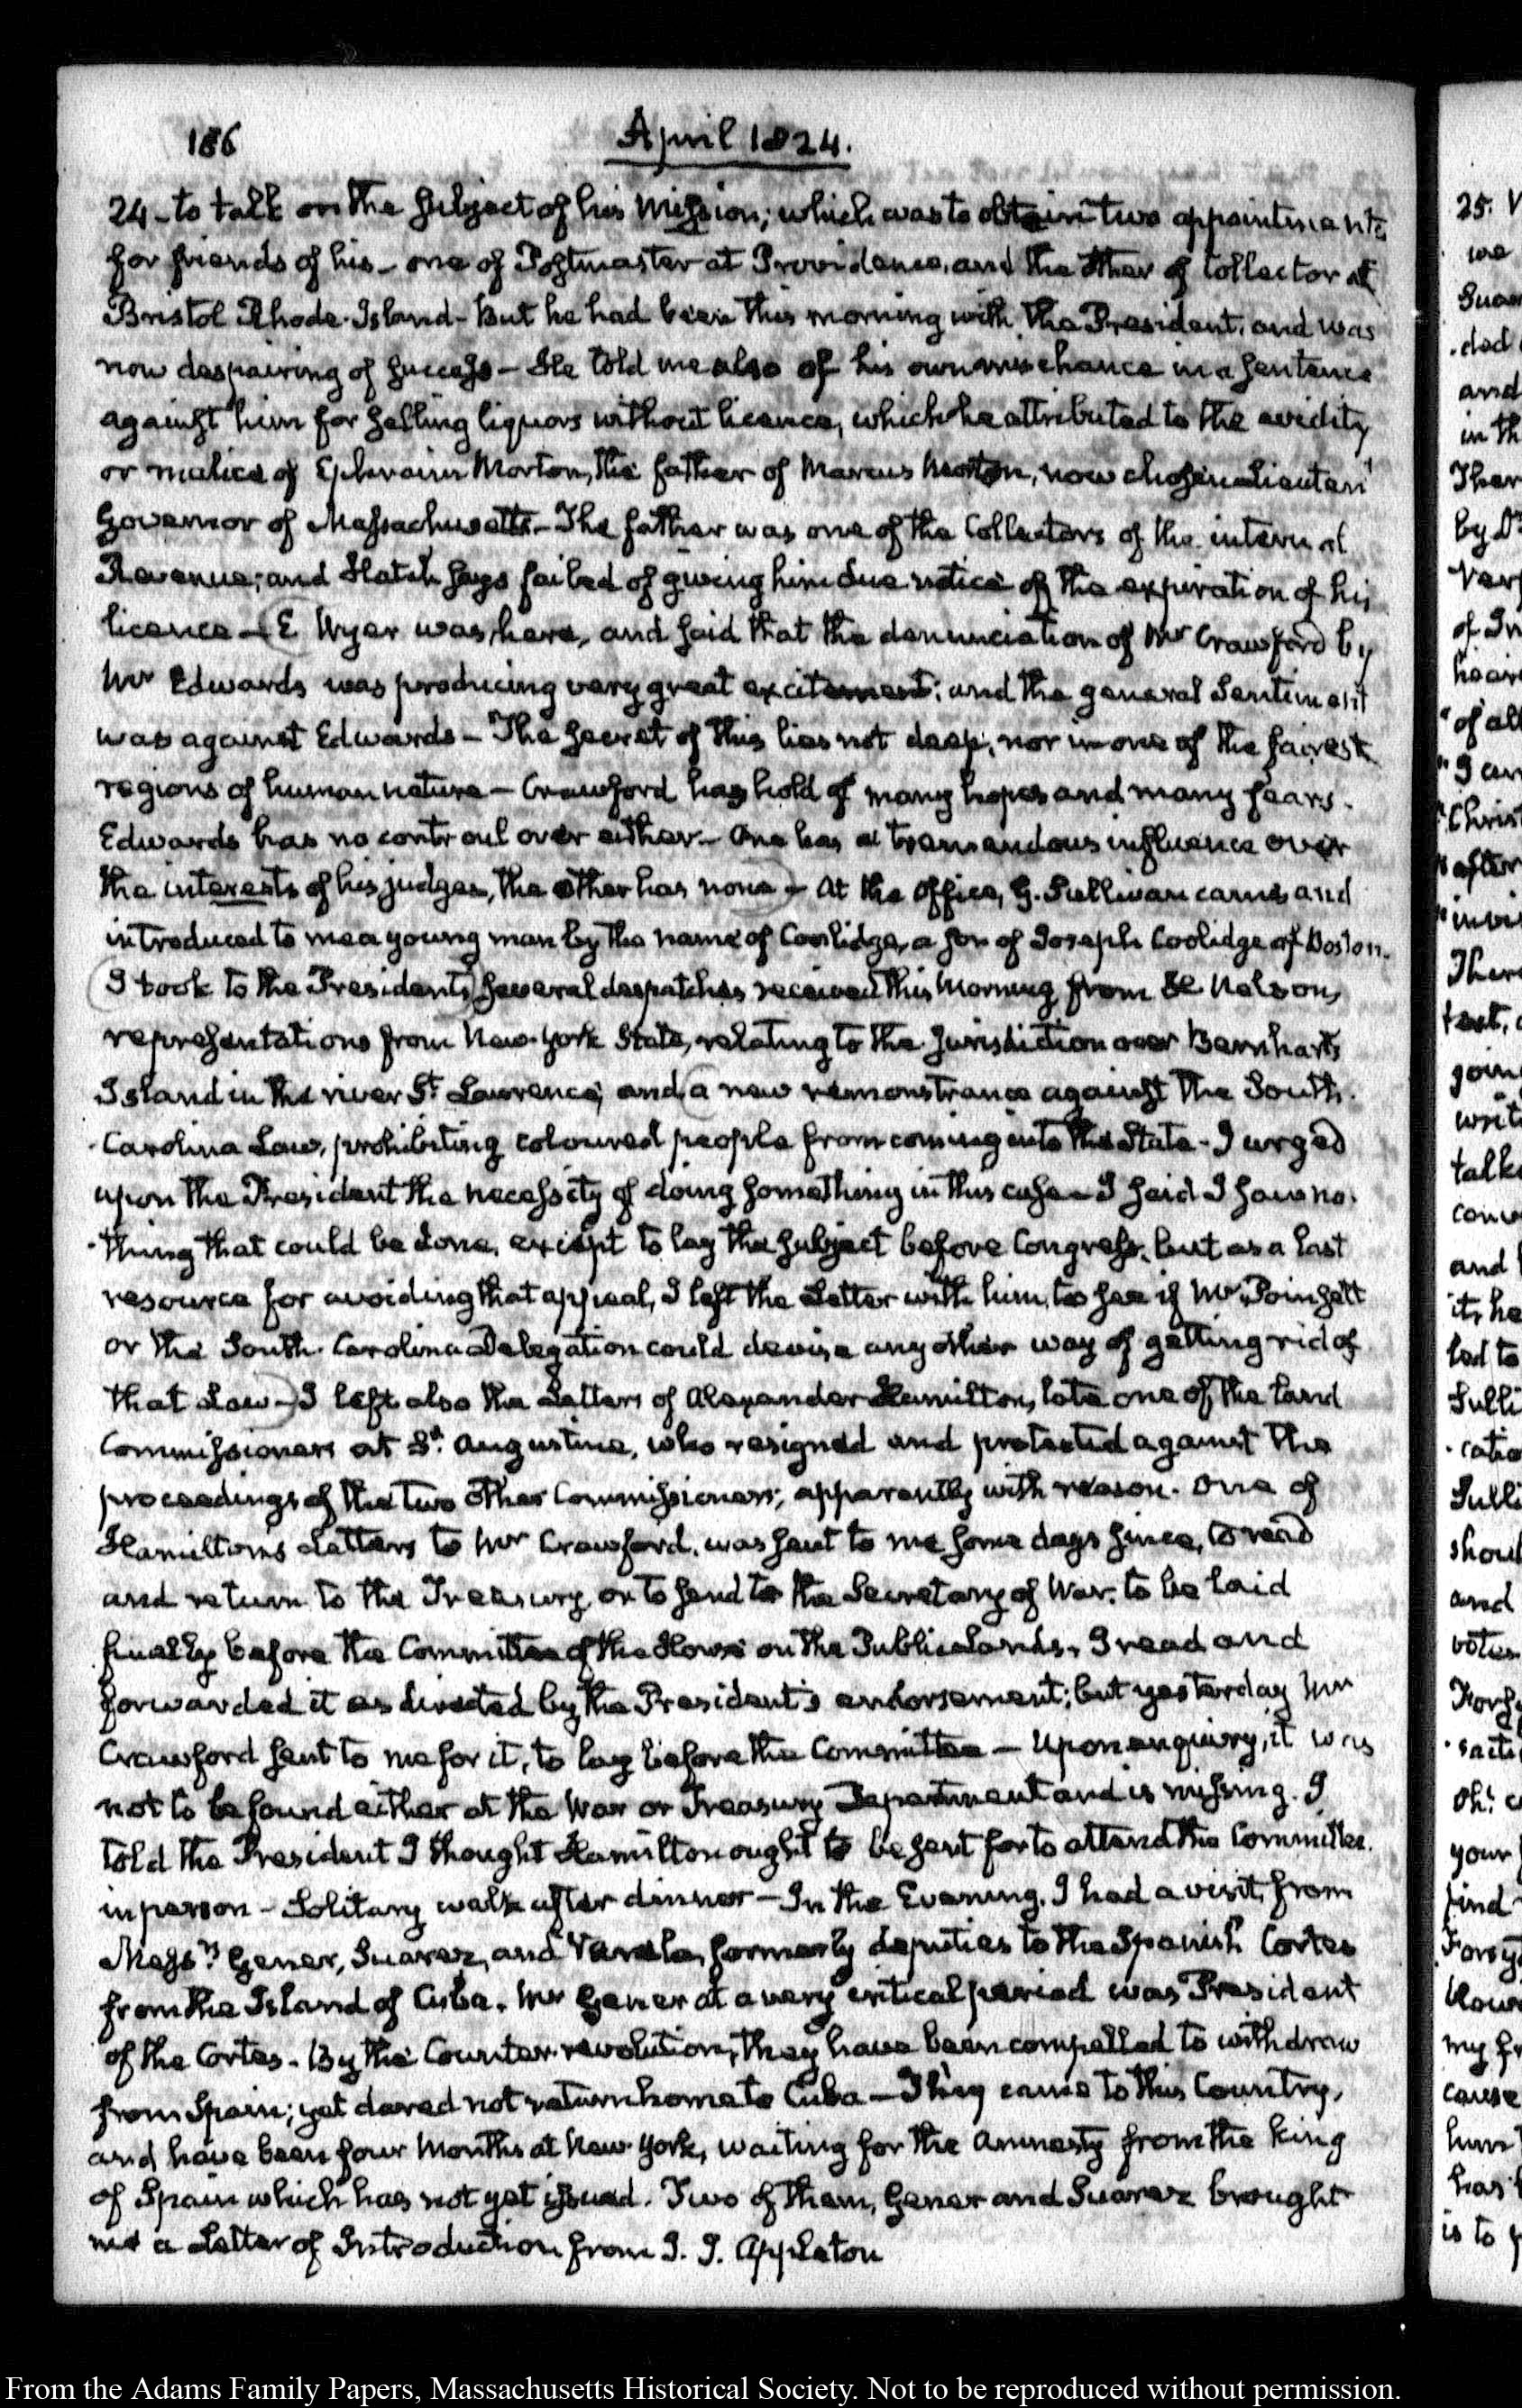 186 April 1824.
24 - to talk on the subject of his Mission; which was to obtain two appointments
for friends of his - one of Postmaster at Providence, and the other of Collector at
Bristol Rhode-Island - But he had been this morning with the President, and was
now despairing of success - He told me also of his own mischance in a sentence
against him for selling liquors without licence, which he attributed to the avidity
or malice of Ephraim Morton, the father of Marcus Morton, now chosen Lieutent
Governor of Massachusetts - The father was one of the Collectors of the internal
Revenue; and Hatch says failed of giving him due notice of the expiration of his
licence - E Wyer was here, and said that the denunciation of Mr Crawford by
Mr Edwards was producing very great excitement; and the general sentiment
was against Edwards - The secret of this lies not deep, nor in one of the fairest
regions of human nature - Crawford has hold of many hopes and many fears.
Edwards has no controul over either - One has a tremendous influence over
the interests of his judges, the other has none - At the Office, G. Sullivan came and
introduced to me a young man by the name of Coolidge, a son of Joseph Coolidge of Boston.
I took to the President's several despatches received this Morning from H. Nelson,
representations from New-York State, relating to the Jurisdiction over Barnharts
Island in the river St Lawrence; and a new remonstrance against the South-
Carolina Law, prohibiting coloured people from coming into the State - I urged
upon the President the necessity of doing something in this case - I said I saw no-
thing that could be done, except to lay the subject before Congress, but as a last
resource for avoiding that appeal, I left the Letter with him, to see if Mr Poinsett
or the South-Carolina Delegation could devise any other way of getting rid of
that Law - I left also the Letters of Alexander Hamilton, late one of the Land
Commissioners at St. Augustine, who resigned and protested against the
proceedings of the two other Commissioners; apparently with reason. One of
Hamilton's Letters to Mr Crawford, was sent to me some days since, to read
and return to the Treasury, or to send to the Secretary of War, to be laid
finally before the Committee of the House on the Public Lands. I read and
forwarded it as directed by the President's endorsement; but yesterday Mr
Crawford sent to me for it, to lay before the Committee - Upon enquiry, it was
not to be found either at the War or Treasury Department and is missing. I
told the President I thought Hamilton ought to be sent for to attend the Committee.
in person - Solitary walk after dinner - In the Evening, I had a visit from
Messrs Gener, Suarez, and Varela, formerly deputies to the Spanish Cortes
from the Island of Cuba. Mr Gener at a very critical period was President
of the Cortes - By the Counter-revolution, they have been compelled to withdraw
from Spain; yet dared not return home to Cuba - They came to this Country,
and have been four Months at New-York, waiting for the Amnesty from the King
of Spain which has not yet issued. Two of them, Gener and Suarez brought
me a Letter of Introduction from J. J. Appleton
From the Adams Family Papers, Massachusetts Historical Society. Not to be reproduced without permission.